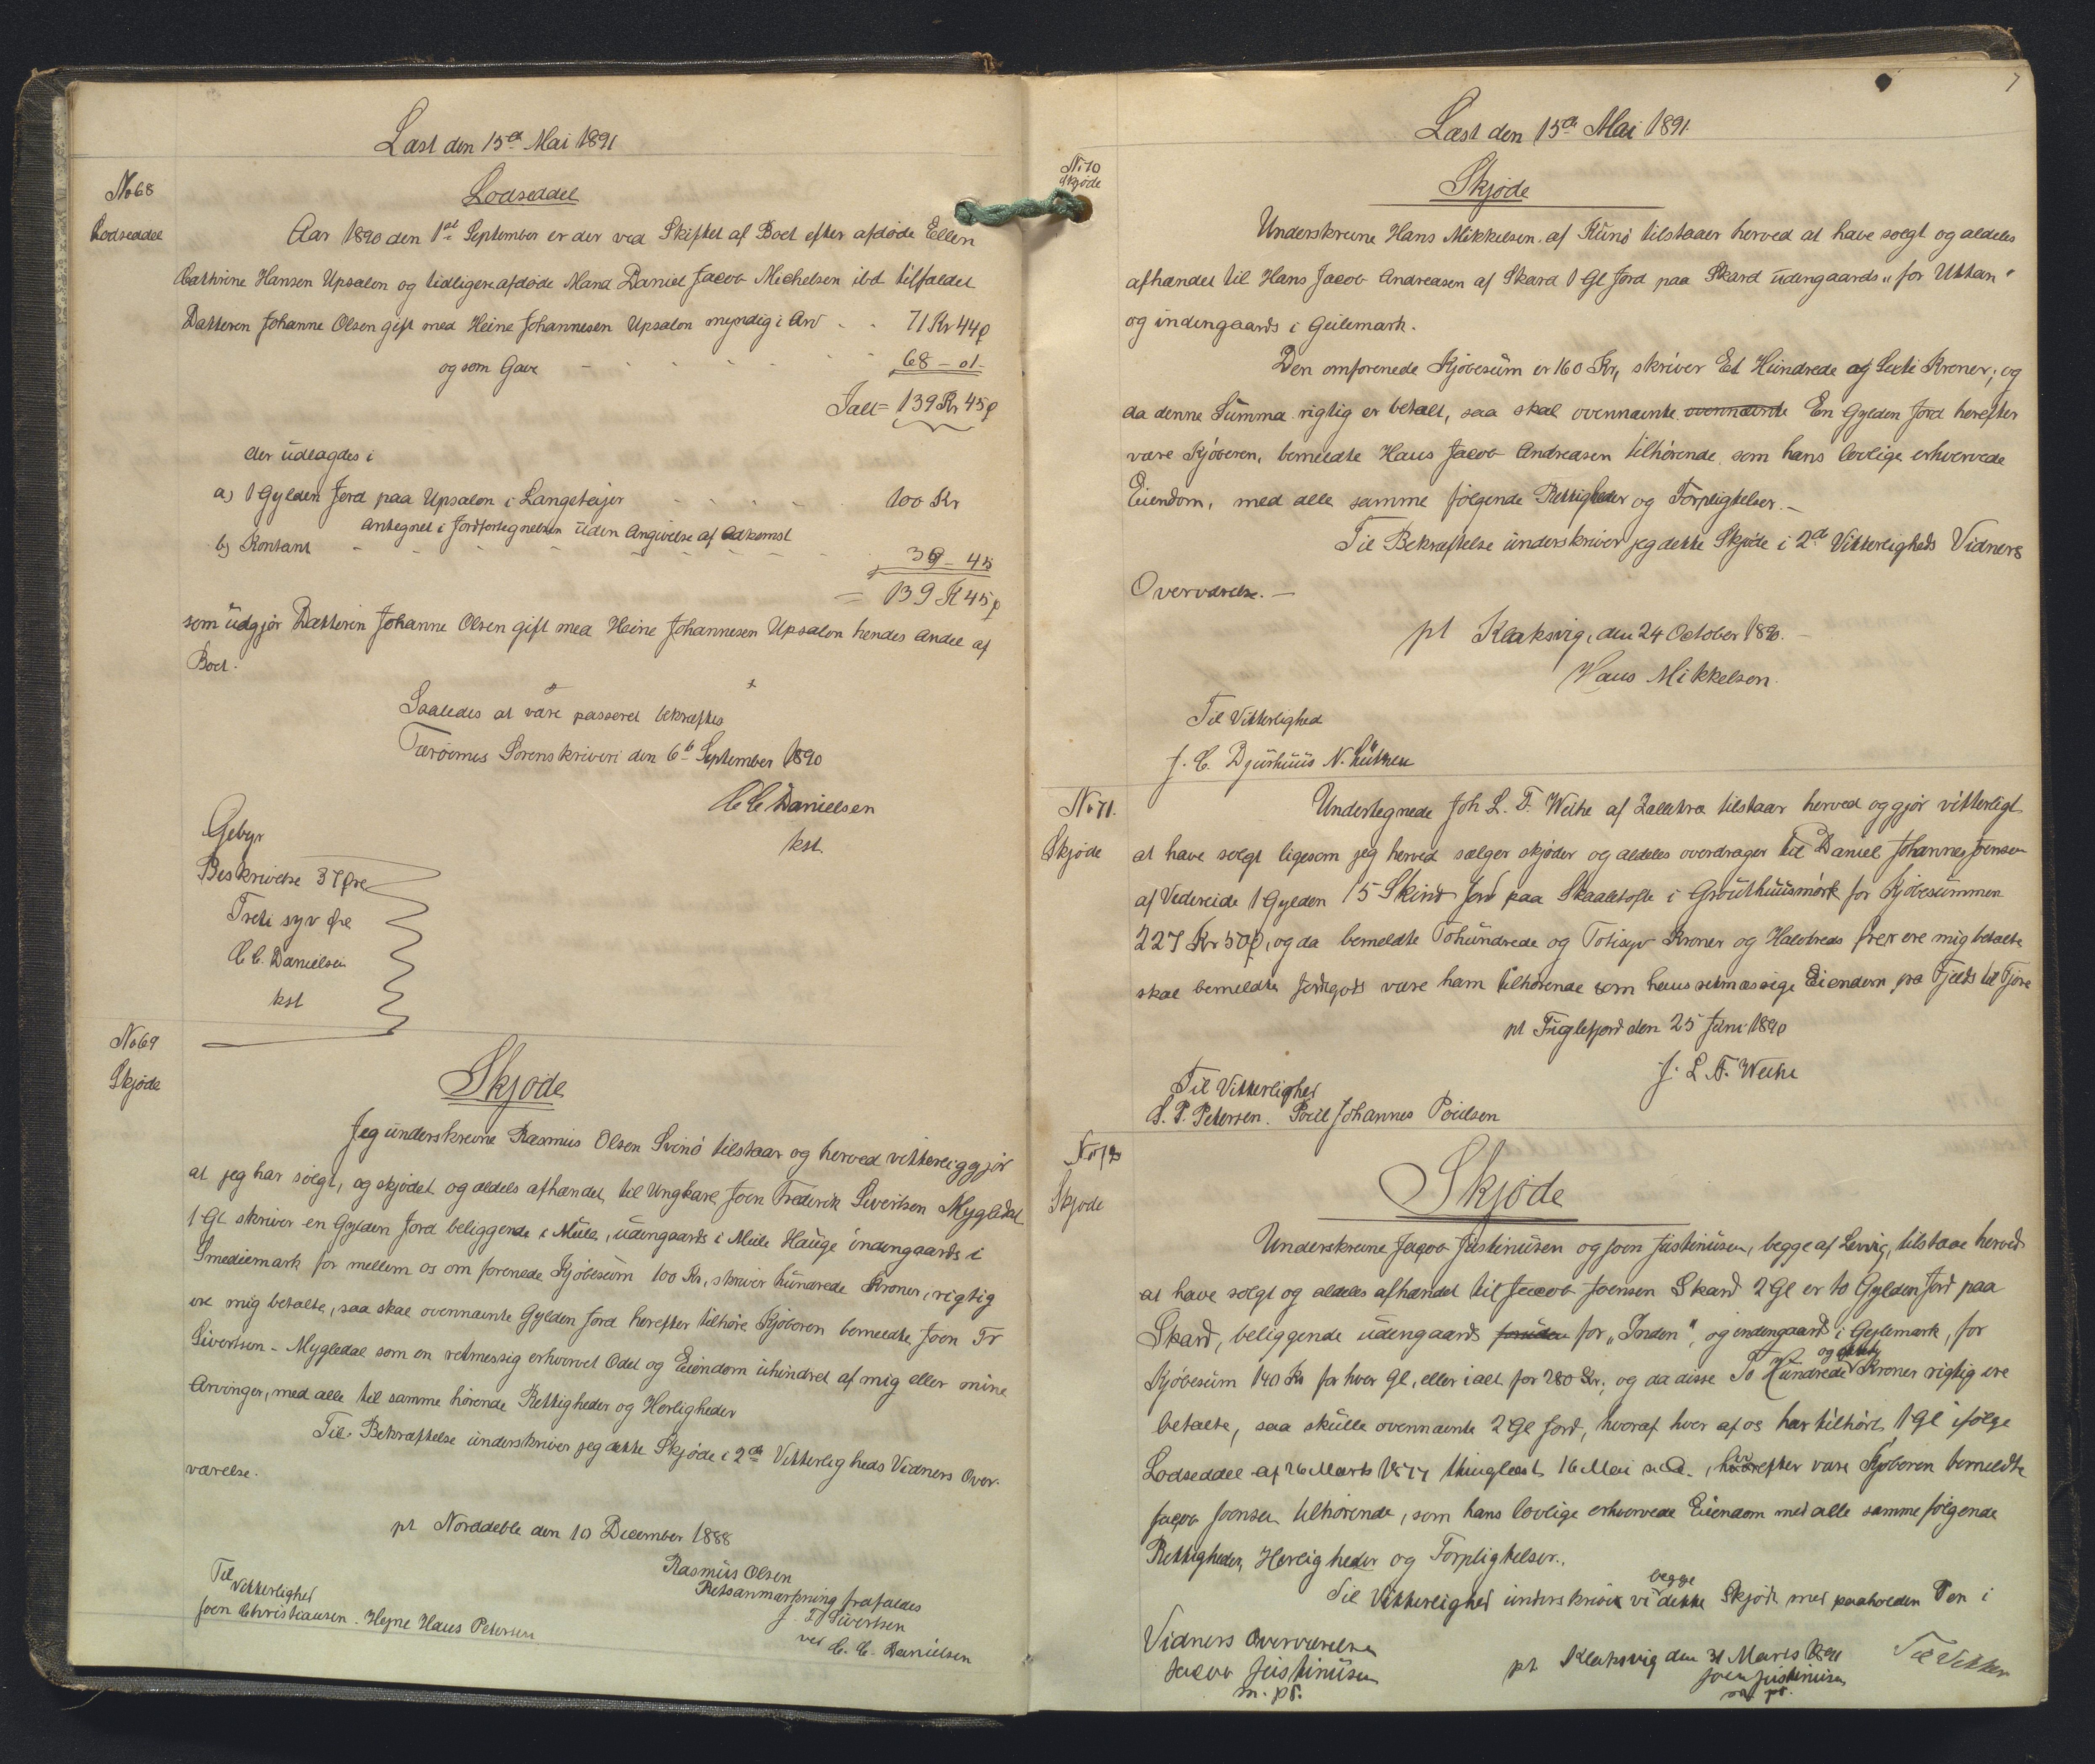 Læst den 15de Mai 1891
No 68
Lodseddel
Lodseddel
Aar 1890 den 1st September er der ved Skiftet af Boet efter afdøde Ellen
Cathrine Hansen Upsalon og tidligere afdøde Mand Daniel Jacob Michelsen ibd tilfaldet
Datteren Johanne Olsen gift med Heine Johannesen Upsalon myndig i Arv - - 71 Kr 44 ø
og som Gave - - - - - - 68 - 01 -
Ialt = 139 Kr 45 ø
der udlagdes i
a) 1 Gylden Jord paa Upsalon i Langeteijer - - - - 100 Kr
antegnet i Jordfortegnelsen uden Angivelse af Adkomst
b) Kontant - - - - - - - 39 - 45
= 139 K 45 ø
som udgjør Datteren Johanne Olsen gift med Heine Johannesen Upsalon hendes Andel af
Boet.
Saaledes at være passeret bekræftes
Færøernes Sorenskriveri den 6te September 1890
C C Danielsen
kst.
Gebyr
Beskrivelse 37 Øre
Treti syv Øre
C C. Danielsen
kst
No 69
Skjøde
Skjøde
Jeg underskrevne Rasmus Olsen Svinø tilstaar og herved vitterliggjør
at jeg har solgt, og skjødet og aldels afhændet til Ungkarl Joen Frederik Sivertsen Mygledal
1 Gl skriver en Gylden Jord beliggende i Mule, udengaards i Mule Hauge indengaards i
Smediemark for mellem os om forenede Kjøbesum 100 Kr, skriver hundrede Kroner, rigtig
ere mig betalte, saa skal ovennævnte Gylden Jord herefter tilhøre Kjøberen bemeldte Joen Fr
Sivertsen - Mygledal som en retmessig erhvervet Odel og Eiendom uhindret af mig eller mine
Arvinger, med alle til samme hørende Rettigheder og Herligheder
Til Bekræftelse underskriver jeg dette Skjøde i 2de Vitterligheds Vidners Over-
værelse.
pt Norddeble den 10 December 1888
Rasmus Olsen
Retsanmærkning frafaldes
J. F Sivertsen
ved C. C. Danielsen
Til
Vitterlighed
Joen Christiansen. Hejne Hans Petersen
7
Læst den 15de Mai 1891.
No 70
Skjøde
Skjøde
Underskrevne Hans Mikkelsen af Kunø tilstaaer herved at have solgt og aldeles
afhændet til Hans Jacob Andreasen af Skard 1 Gl Jord paa Skard udengaards „for Uttan"
og indengaards i Geilemark.
Den omforenede Kjøbesum er 160 Kr, skriver Et Hundrede og Sexti Kroner; og
da denne Summa rigtig er betalt, saa skal ovennævnte ovennævnte En Gylden Jord herefter
være Kjøberen, bemeldte Hans Jacob Andreasen tilhørende som hans lovlige erhvervede
Eiendom, med alle samme følgende Rettigheder og Forpligtelser. -
Til Bekræftelse underskriver jeg dette Skjøde i 2de Vitterligheds Vidners
Overværelse. -
pt Klaksvig, den 24 October 1890. -
Hans Mikkelsen.
Til Vitterlighed
J. C. Djurhuus N. Lützen
No 71.
Skjøde
Undertegnede Joh L. F. Weihe af Zallatra tilstaar herved og gjør vitterligt
at have solgt ligesom jeg herved sælger skjøder og aldeles overdrager til Daniel Johannes Joensen
af Videreide 1 Gylden 15 Skind Jord paa Skaaletofte i Grouthuusmørk for Kjøbesummen
227 Kr 50 ø, og da bemeldte Tohundrede og Totisyv Kroner og Halvtreds Ører ere mig betalte
skal bemeldte Jordgods være ham tilhørende som hans retmæssige Eiendom fra Fjelds til Fjære
pt Fuglefjord den 25 Juni 1890
J. L F. Weihe
Til Vitterlighed
S. P. Petersen. Poul Johannes Poulsen
No 72
Skjøde
Skjøde
Underskrevne Jacob Justinusen og Joen Justinusen, begge af Levvig, tilstaae herved
at have solgt og aldeles afhændet til Jacob Joensen Skard 2 Gl er to Gylden Jord paa
Skard, beliggende udengaards for „Inden", og indengaards i Geylemark, for
Kjøbesum 140 Kr for hver Gl, eller i alt for 280 Kr; og da disse To Hundrede Kroner rigtig ere
betalte, saa skulle ovennævnte 2 Gl Jord, hvoraf hver af os har tilhørt 1 Gl ifølge
Lodseddel af 26 Marts thinglæst 16 Mai s. A., herefter være Kjøberen bemeldte
Jacob Joensen tilhørende, som hans lovlige erhvervede Eiendom med alle samme følgende
Rettigheder, Herligheder og Forpligtelser.
Til Vitterlighed underskrive vi begge dette Skjøde med paaholden Pen i
Vidners Overværelse
pt Klaksvig den 31 Marts 1891
Jacob Justinusen
m. ps.
Joen Justinusen
m. ps.
Til Vitter